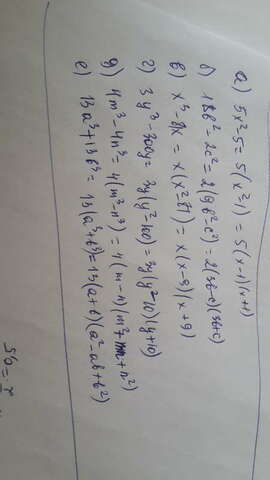 а) 5x²-5=5(x²-1)=5(x-1)(x+1)
б) 18b²-2c²=2(9b²-c²)=2(3b-c)(3b+c)
в) x³-81x=x(x²-81)=x(x-9)(x+9)
г) 3y³-300y=3y(y²-100)=3y(y-10)(y+10)
д) 4m³-4n³=4(m³-n³)=4(m-n)(m²+mn+n²)
е) 13a³+13b³=13(a³+b³)=13(a+b)(a²-ab+b²)